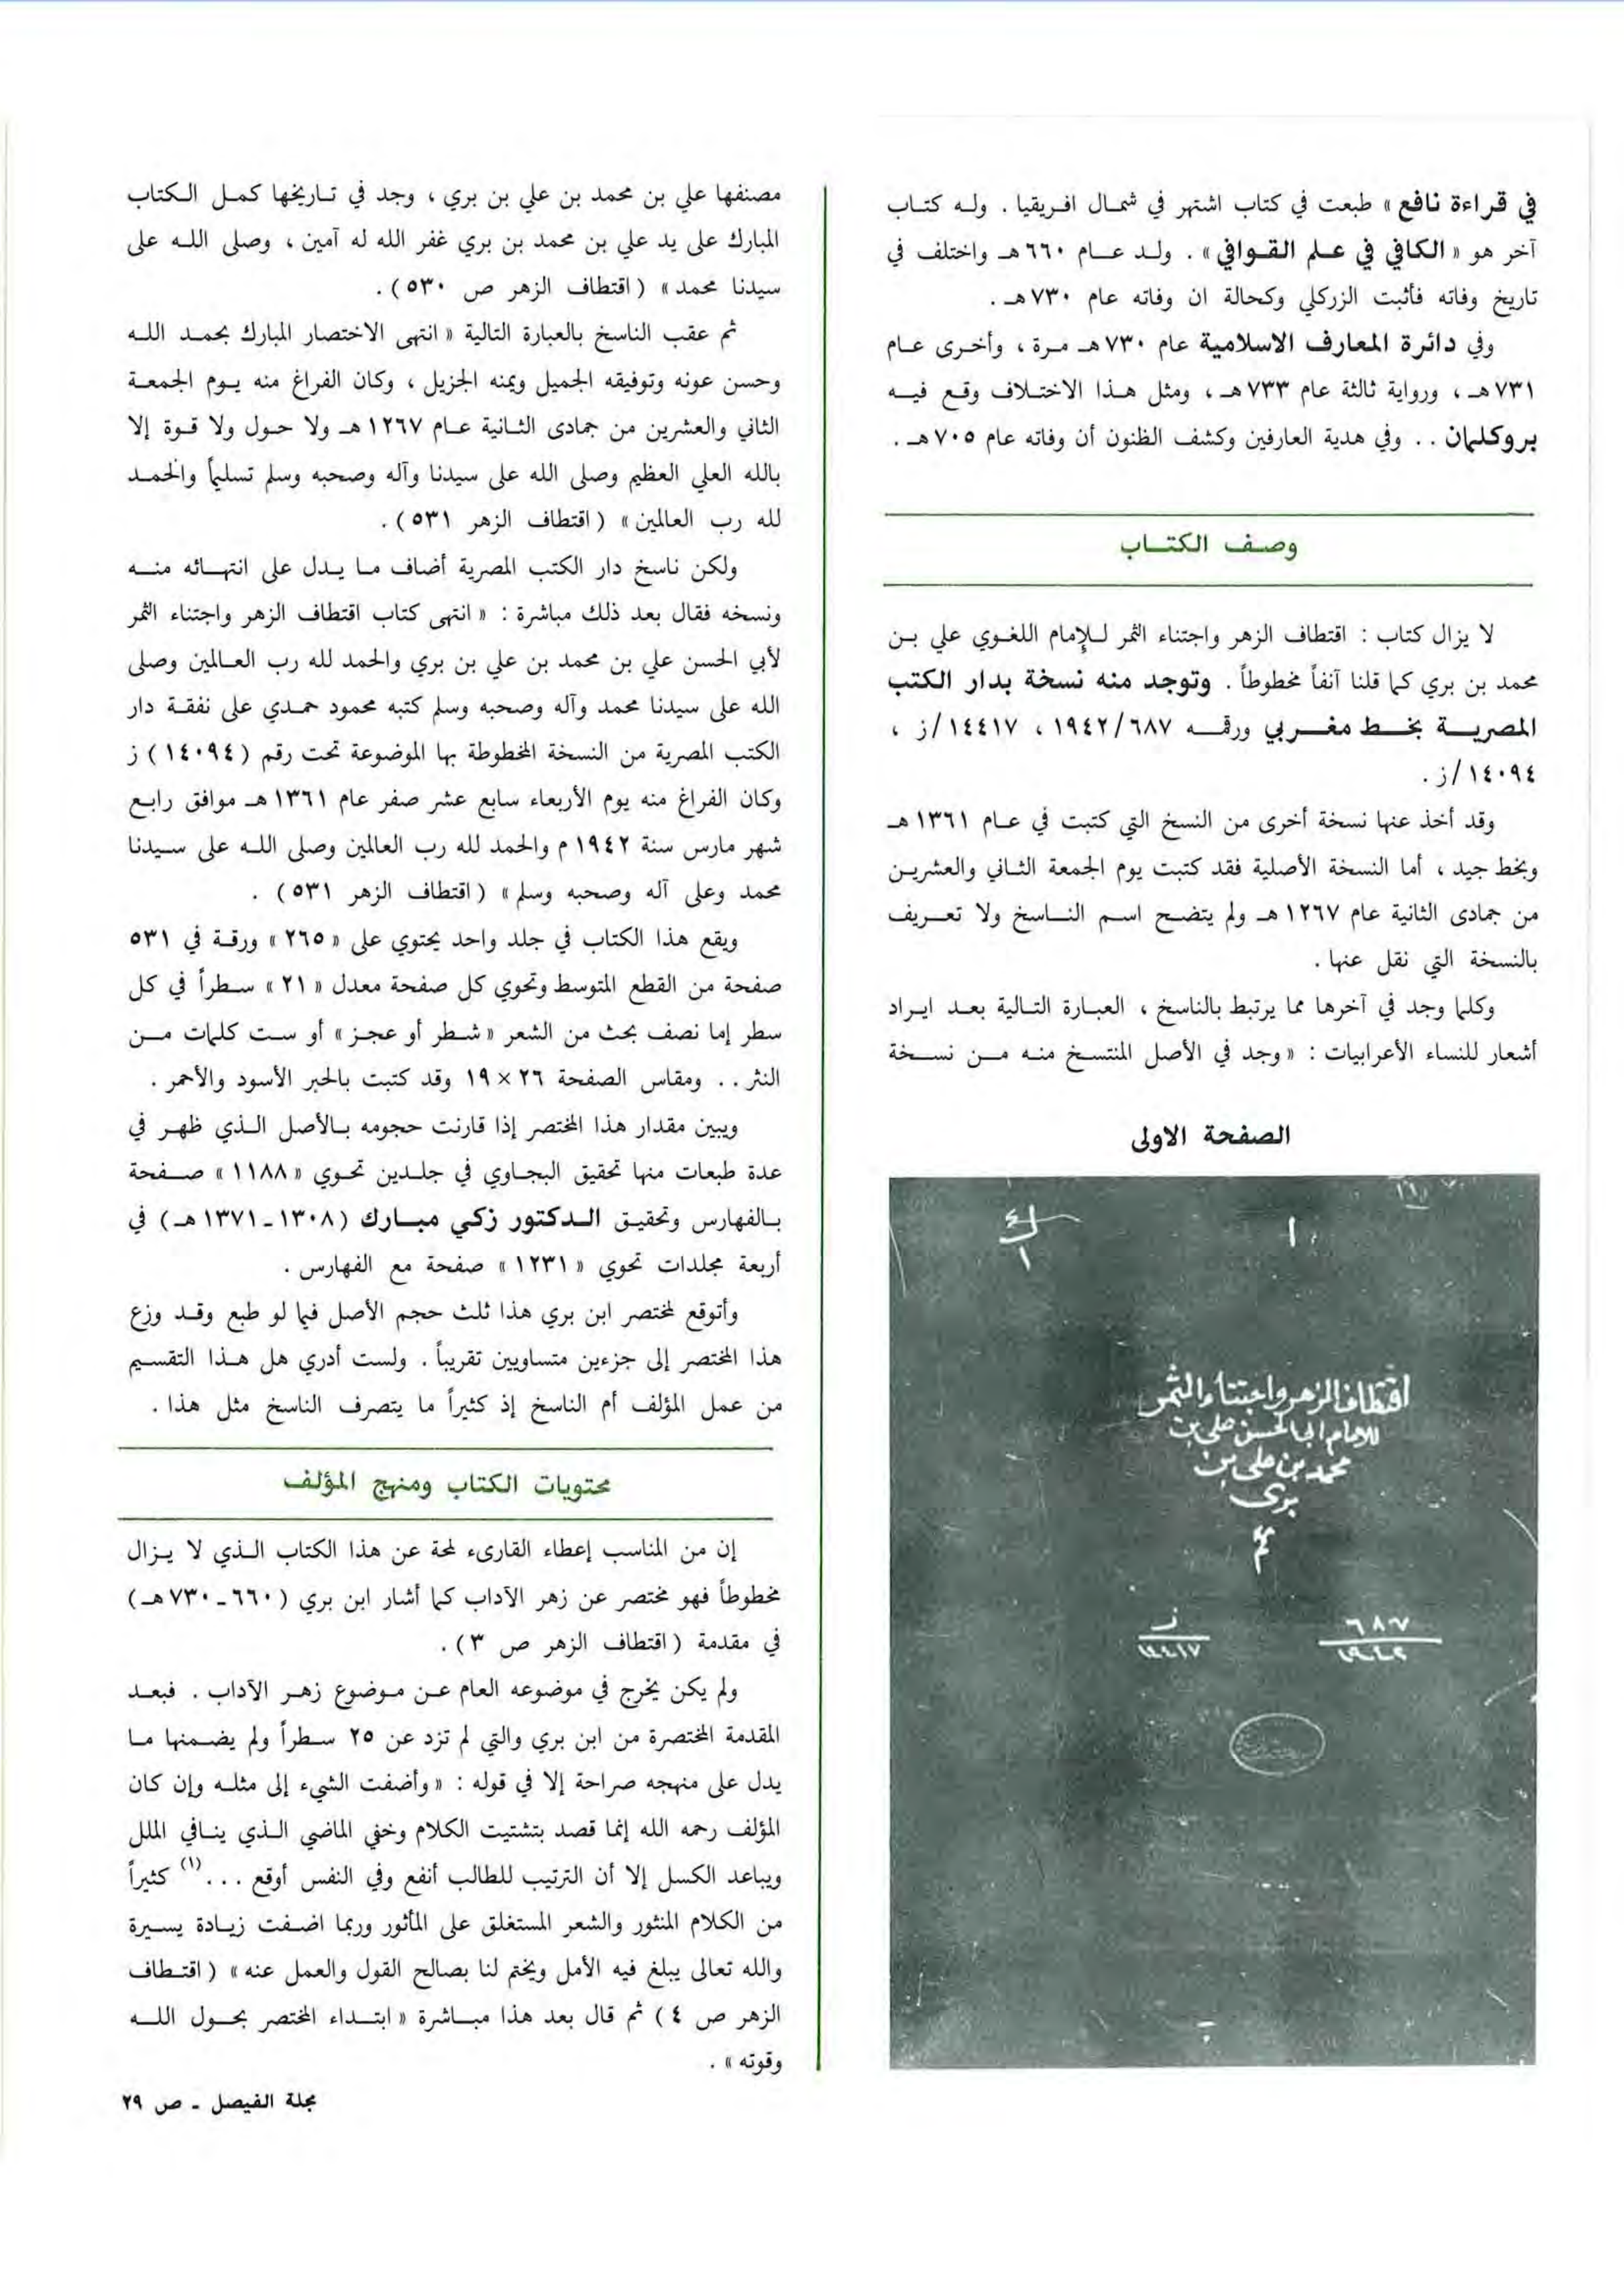 في قراءة نافع » طبعت في كتاب اشتهر في شمال افريقيا . وله كتاب
آخر هو « الكافي في علم القوافي » . ولد عام ٦٦٠ هـ واختلف في
تاريخ وفاته فأثبت الزركلي وكحالة ان وفاته عام ٧٣٠ هـ .
وفي دائرة المعارف الاسلامية عام ٧٣٠ هـ مرة ، وأخرى عام
٧٣١ هـ ، ورواية ثالثة عام ٧٣٣ هـ ، ومثل هذا الاختلاف وقع فيه
بروكلمان . . وفي هدية العارفين وكشف الظنون أن وفاته عام ٧٠٥ هـ .
وصف الكتاب
لا يزال كتاب : اقتطاف الزهر واجتناء الثمر للإمام اللغوي علي بن
محمد بن بري كما قلنا آنفاً مخطوطاً . وتوجد منه نسخة بدار الكتب
المصرية بخط مغربي ورقمه ١٩٤٢/٦٨٧ ، ١٤٤١٧/ز ،
١٤٠٩٤/ز .
وقد أخذ عنها نسخة أخرى من النسخ التي كتبت في عام ١٣٦١ هـ
وبخط جيد ، أما النسخة الأصلية فقد كتبت يوم الجمعة الثاني والعشرين
من جمادى الثانية عام ١٢٦٧ هـ ولم يتضح اسم الناسخ ولا تعريف
بالنسخة التي نقل عنها .
وكلما وجد في آخرها مما يرتبط بالناسخ ، العبارة التالية بعد ايراد
أشعار للنساء الأعرابيات : « وجد في الأصل المنتسخ منه من نسخة
الصفحة الاولى
اقتطاف الزهر واجتناء الثمر
للامام ابى الحسن على بن
محمد بن على بن
برى
٦٨٧
١٩٤٢
ز
١٤٤١٧
مصنفها علي بن محمد بن علي بن بري ، وجد في تاريخها كمل الكتاب
المبارك على يد علي بن محمد بن بري غفر الله له آمين ، وصلى الله على
سيدنا محمد » ( اقتطاف الزهر ص ٥٣٠ ) .
ثم عقب الناسخ بالعبارة التالية « انتهى الاختصار المبارك بحمد الله
وحسن عونه وتوفيقه الجميل ويمنه الجزيل ، وكان الفراغ منه يوم الجمعة
الثاني والعشرين من جمادى الثانية عام ١٢٦٧ هـ ولا حول ولا قوة إلا
بالله العلي العظيم وصلى الله على سيدنا وآله وصحبه وسلم تسليماً والحمد
لله رب العالمين » ( اقتطاف الزهر ٥٣١ ) .
ولكن ناسخ دار الكتب المصرية أضاف ما يدل على انتهائه منه
ونسخه فقال بعد ذلك مباشرة : « انتهى كتاب اقتطاف الزهر واجتناء الثمر
لأبي الحسن علي بن محمد بن علي بن بري والحمد لله رب العالمين وصلى
الله على سيدنا محمد وآله وصحبه وسلم كتبه محمود حمدي على نفقة دار
الكتب المصرية من النسخة المخطوطة بها الموضوعة تحت رقم ( ١٤٠٩٤ ) ز
وكان الفراغ منه يوم الأربعاء سابع عشر صفر عام ١٣٦١ هـ موافق رابع
شهر مارس سنة ١٩٤٢ م والحمد لله رب العالمين وصلى الله على سيدنا
محمد وعلى آله وصحبه وسلم » ( اقتطاف الزهر ٥٣١ ) .
ويقع هذا الكتاب في جلد واحد يحتوي على « ٢٦٥ » ورقة في ٥٣١
صفحة من القطع المتوسط وتحوي كل صفحة معدل « ٢١ » سطراً في كل
سطر إما نصف بحث من الشعر « شطر أو عجز » أو ست كلمات من
النثر . . ومقاس الصفحة ٢٦ × ١٩ وقد كتبت بالحبر الأسود والأحمر .
ويبين مقدار هذا المختصر إذا قارنت حجومه بالأصل الذي ظهر في
عدة طبعات منها تحقيق البجاوي في جلدين تحوي « ١١٨٨ » صفحة
بالفهارس وتحقيق الدكتور زكي مبارك ( ١٣٠٨ - ١٣٧١ هـ ) في
أربعة مجلدات تحوي « ١٢٣١ » صفحة مع الفهارس .
وأتوقع لمختصر ابن بري هذا ثلث حجم الأصل فيما لو طبع وقد وزع
هذا المختصر إلى جزءين متساويين تقريباً . ولست أدري هل هذا التقسيم
من عمل المؤلف أم الناسخ إذ كثيراً ما يتصرف الناسخ مثل هذا .
محتويات الكتاب ومنهج المؤلف
إن من المناسب إعطاء القارىء لمحة عن هذا الكتاب الذي لا يزال
مخطوطاً فهو مختصر عن زهر الآداب كما أشار ابن بري ( ٦٦٠ - ٧٣٠ هـ )
في مقدمة ( اقتطاف الزهر ص ٣ ) .
ولم يكن يخرج في موضوعه العام عن موضوع زهر الآداب . فبعد
المقدمة المختصرة من ابن بري والتي لم تزد عن ٢٥ سطراً ولم يضمنها ما
يدل على منهجه صراحة إلا في قوله : « وأضفت الشيء إلى مثله وإن كان
المؤلف رحمه الله إنما قصد بتشتيت الكلام وخفي الماضي الذي ينافي الملل
ويباعد الكسل إلا أن الترتيب للطالب أنفع وفي النفس أوقع . . . (١) كثيراً
من الكلام المنثور والشعر المستغلق على المأثور وربما اضفت زيادة يسيرة
والله تعالى يبلغ فيه الأمل ويختم لنا بصالح القول والعمل عنه » ( اقتطاف
الزهر ص ٤ ) ثم قال بعد هذا مباشرة « ابتداء المختصر بحول الله
وقوته » .
مجلة الفيصل - ص ٢٩